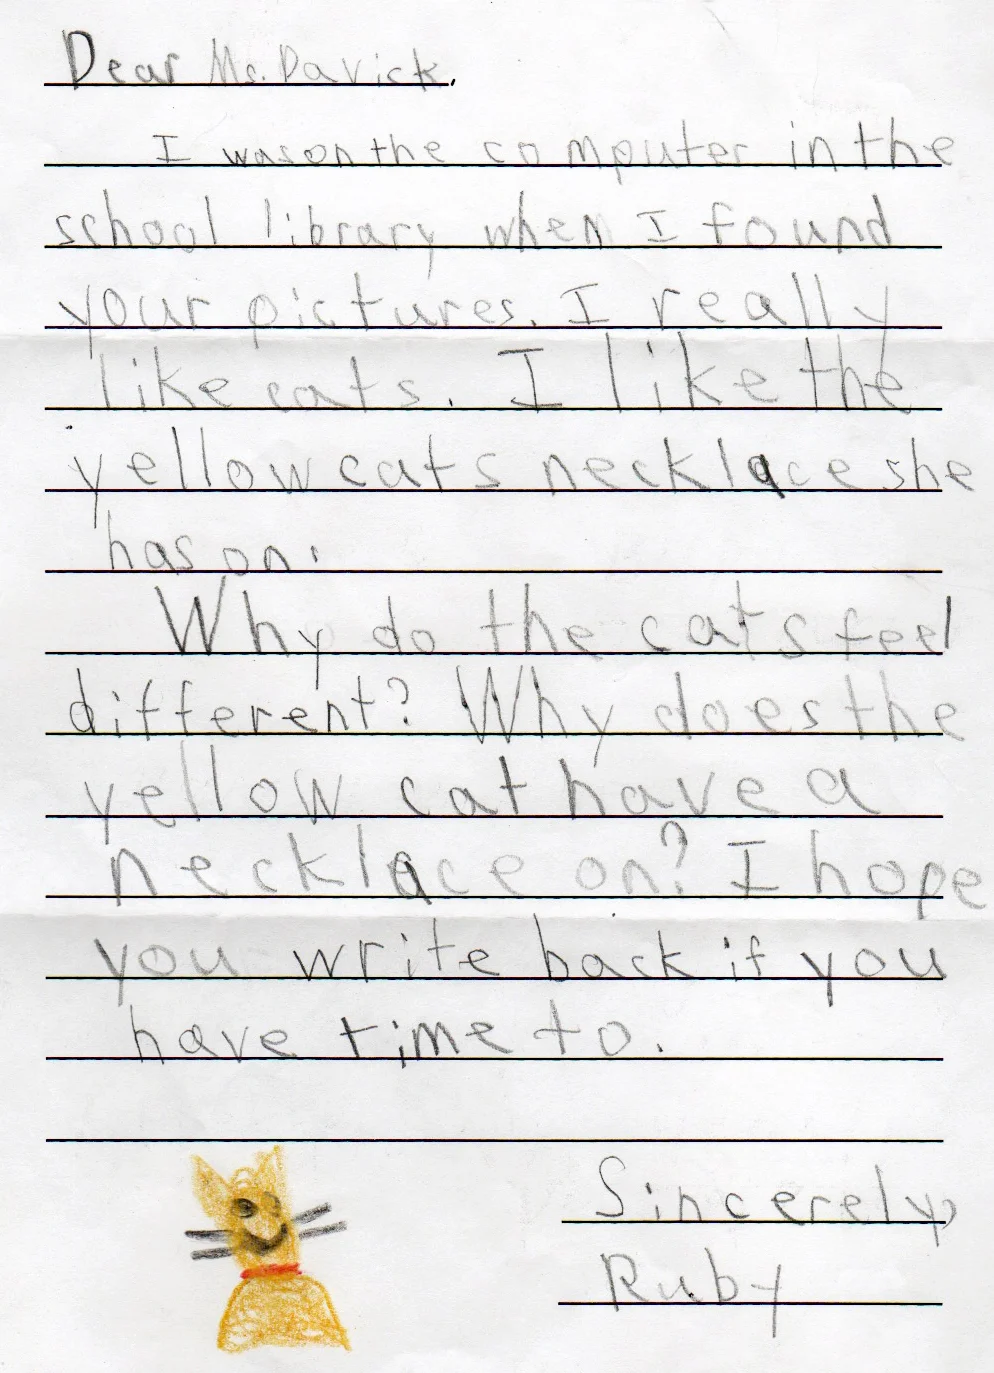 Dear Ms. Davick,
I was on the computer in the
school library when I found
your pictures. I really
like cats. I like the
yellow cats necklace she
has on.
Why do the cats feel
different? Why does the
yellow cat have a
necklace on? I hope
you write back if you
have time to.
Sincerely,
Ruby